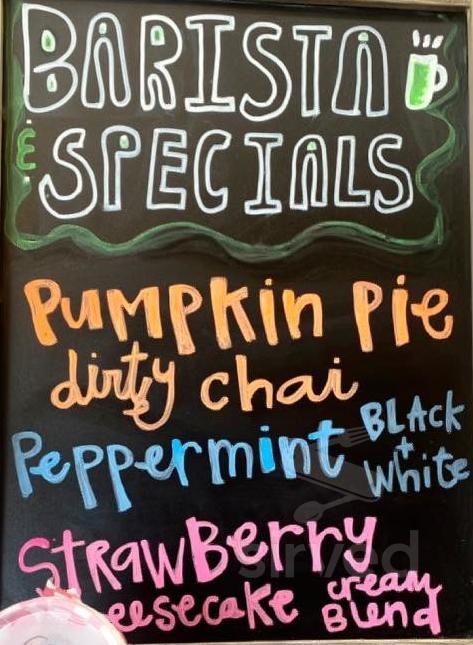 BARISTA
& SPECIALS
PUMPKIN PiE
dirty chai
Peppermint BLAck + White
STRAWBERRY
eesecake cream Blend
sirved